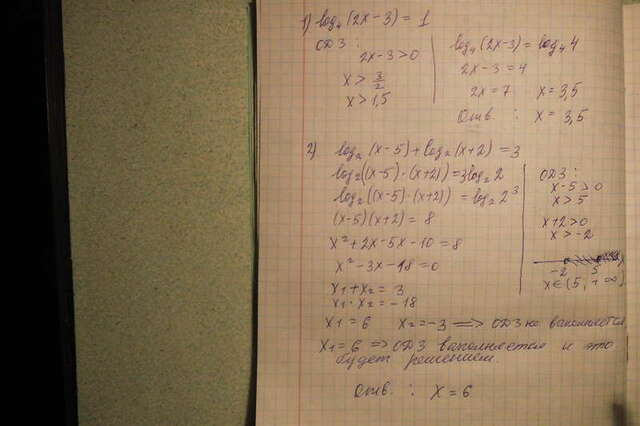 1) log₄(2x-3) = 1
ОДЗ:
2x-3>0
x > 3/2
x > 1,5
log₄(2x-3) = log₄4
2x-3 = 4
2x = 7 x = 3,5
Отв : x = 3,5
2) log₂(x-5)+log₂(x+2) = 3
log₂((x-5)·(x+2)) = 3log₂2
log₂((x-5)·(x+2)) = log₂2³
(x-5)(x+2) = 8
x²+2x-5x-10 = 8
x²-3x-18 = 0
x₁+x₂ = 3
x₁·x₂ = -18
ОДЗ:
x-5>0
x>5
x+2>0
x>-2
-2 5
x∈(5, +∞)
x₁ = 6 x₂ = -3 ⟹ ОДЗ не выполняется
x₁ = 6 ⟹ ОДЗ выполняется и это
будет решением.
Отв. : x = 6